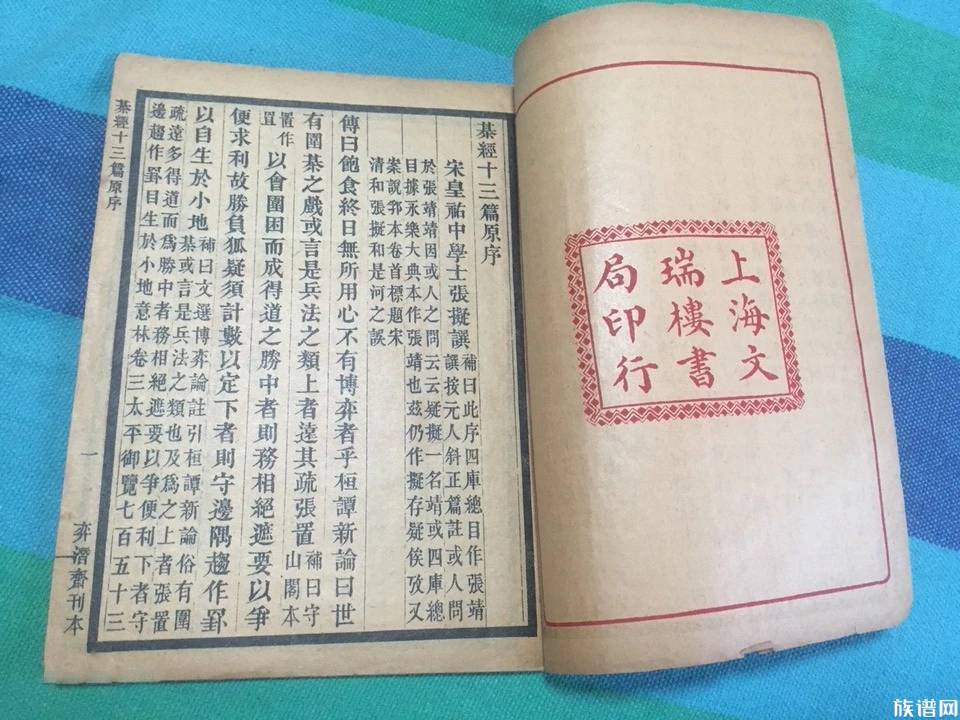 上海文
瑞樓書
局印行
棊經十三篇原序
宋皇祐中學士張擬譔
補曰此序四庫總目作張靖
譔按元人斜正篇註或人問
於張靖靖因或人之問云云疑擬一名靖或四庫總
目據永樂大典本作張靖也茲仍作擬存疑俟攷又
案說郛本卷首標題宋
清和張擬和是河之誤
傳曰飽食終日無所用心不有博弈者乎桓譚新論曰世
有圍棊之戲或言是兵法之類上者遠其疏張置
補曰守
山閣本
置作
罝
以會圍因而成得道之勝中者則務相絕遮要以爭
便求利故勝負狐疑須計數以定下者則守邊隅趨作罫
以自生於小地
補曰文選博弈論註引桓譚新論俗有圍
棊或言是兵法之類也及爲之上者張置
疏遠多得道而爲勝中者務相絕遮要以爭便利下者守
邊趨作罫目生於小地意林卷三太平御覽七百五十三
棊經十三篇原序
一
弈潛齋刊本
族谱网